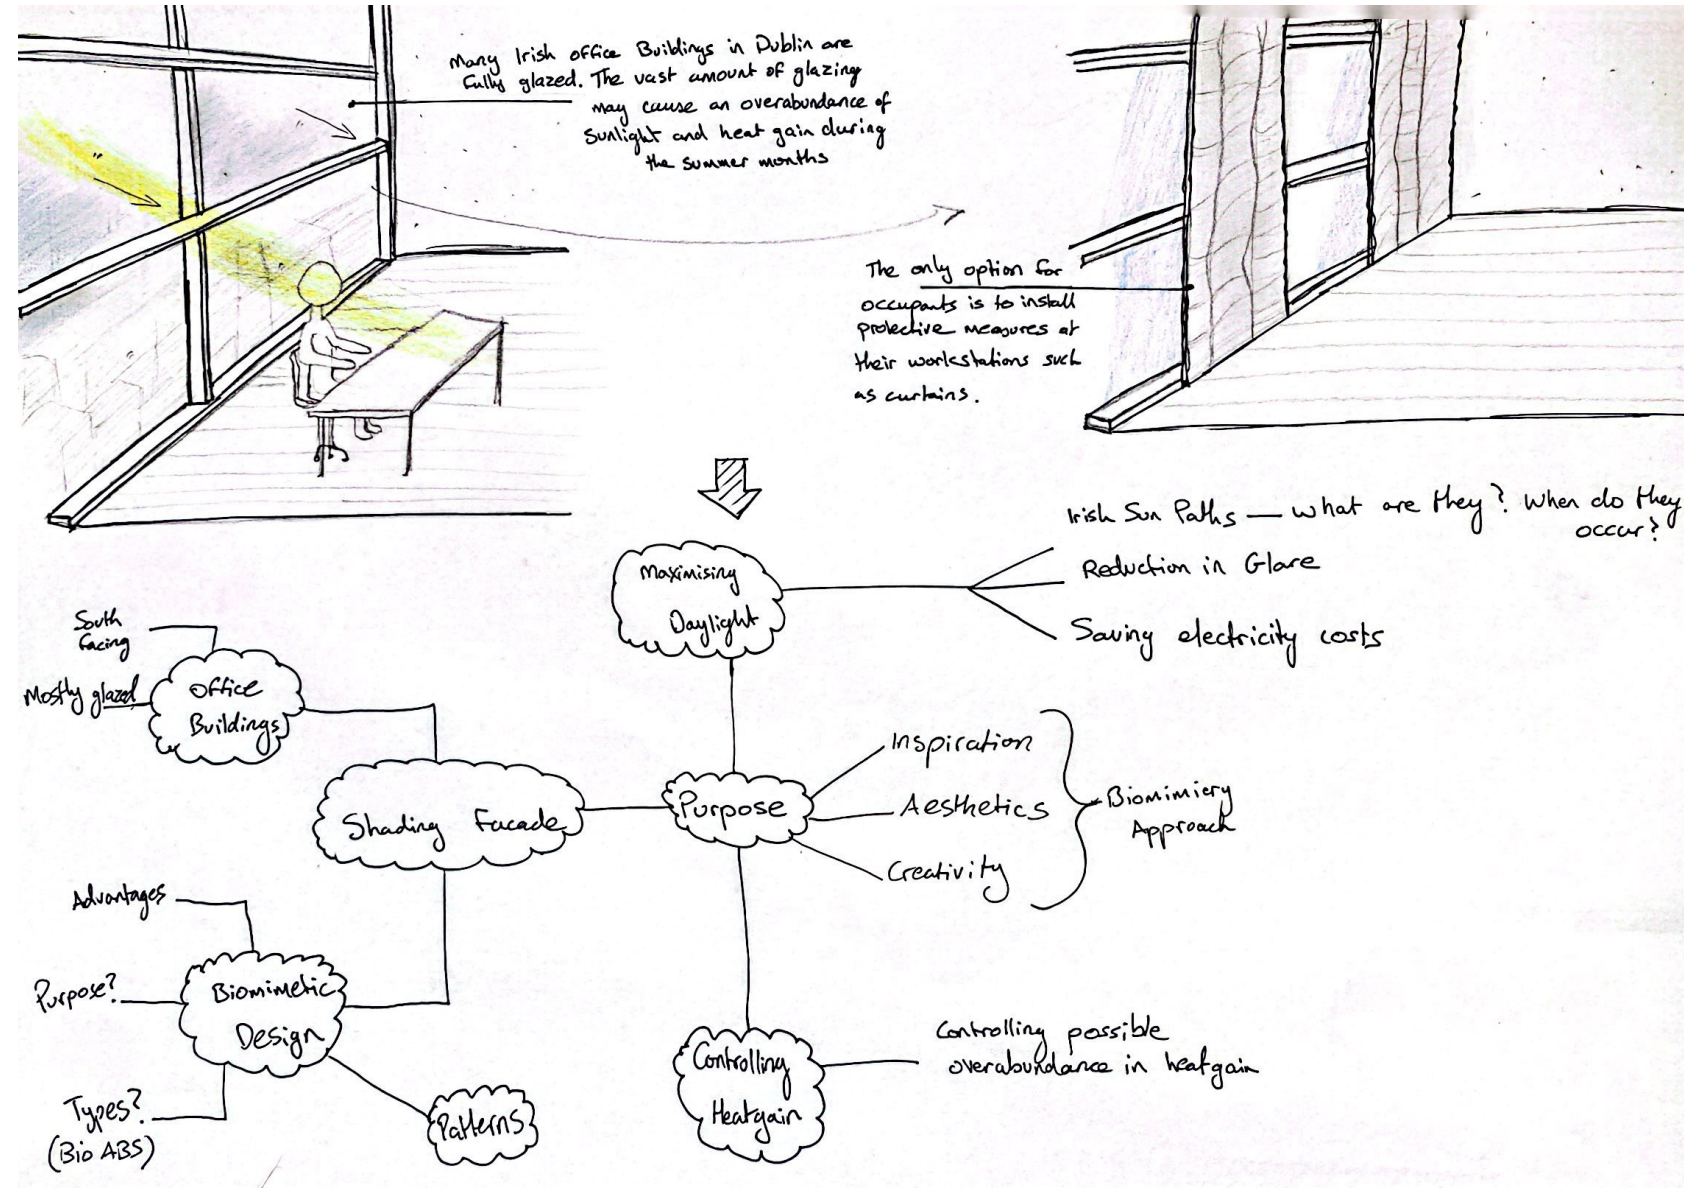 Many Irish office Buildings in Dublin are
fully glazed. The vast amount of glazing
may cause an overabundance of
sunlight and heat gain during
the summer months
The only option for
occupants is to install
protective measures at
their workstations such
as curtains.
Irish Sun Paths — what are they? When do they
occur?
Maximising
Daylight
Reduction in Glare
Saving electricity costs
South
facing
Mostly glazed
Office
Buildings
Shading Facade
Purpose
Inspiration
Aesthetics
Creativity
Biomimicry
Approach
Advantages
Purpose?
Biomimetic
Design
Types?
(Bio ABS)
Patterns
Controlling
Heatgain
Controlling possible
overabundance in heatgain